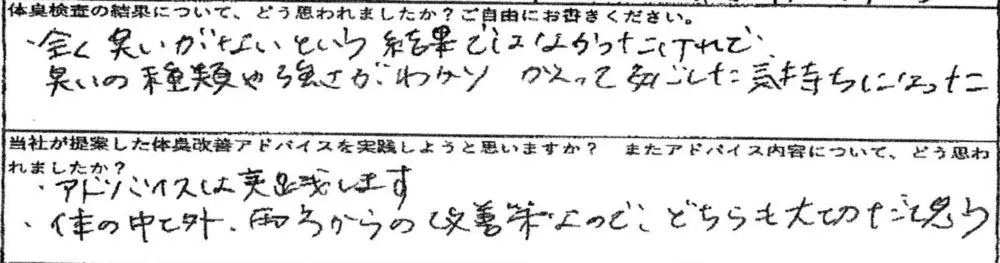 体臭検査の結果について、どう思われましたか？ご自由にお書きください。
・全く臭いがないという結果ではなかったけれど、
臭いの種類や強さがわかり かえって安心した気持ちになった
当社が提案した体臭改善アドバイスを実践しようと思いますか？ またアドバイス内容について、どう思わ
れましたか？
・アドバイスは実践します
・体の中と外、両方からの改善策なので、どちらも大切だと思う